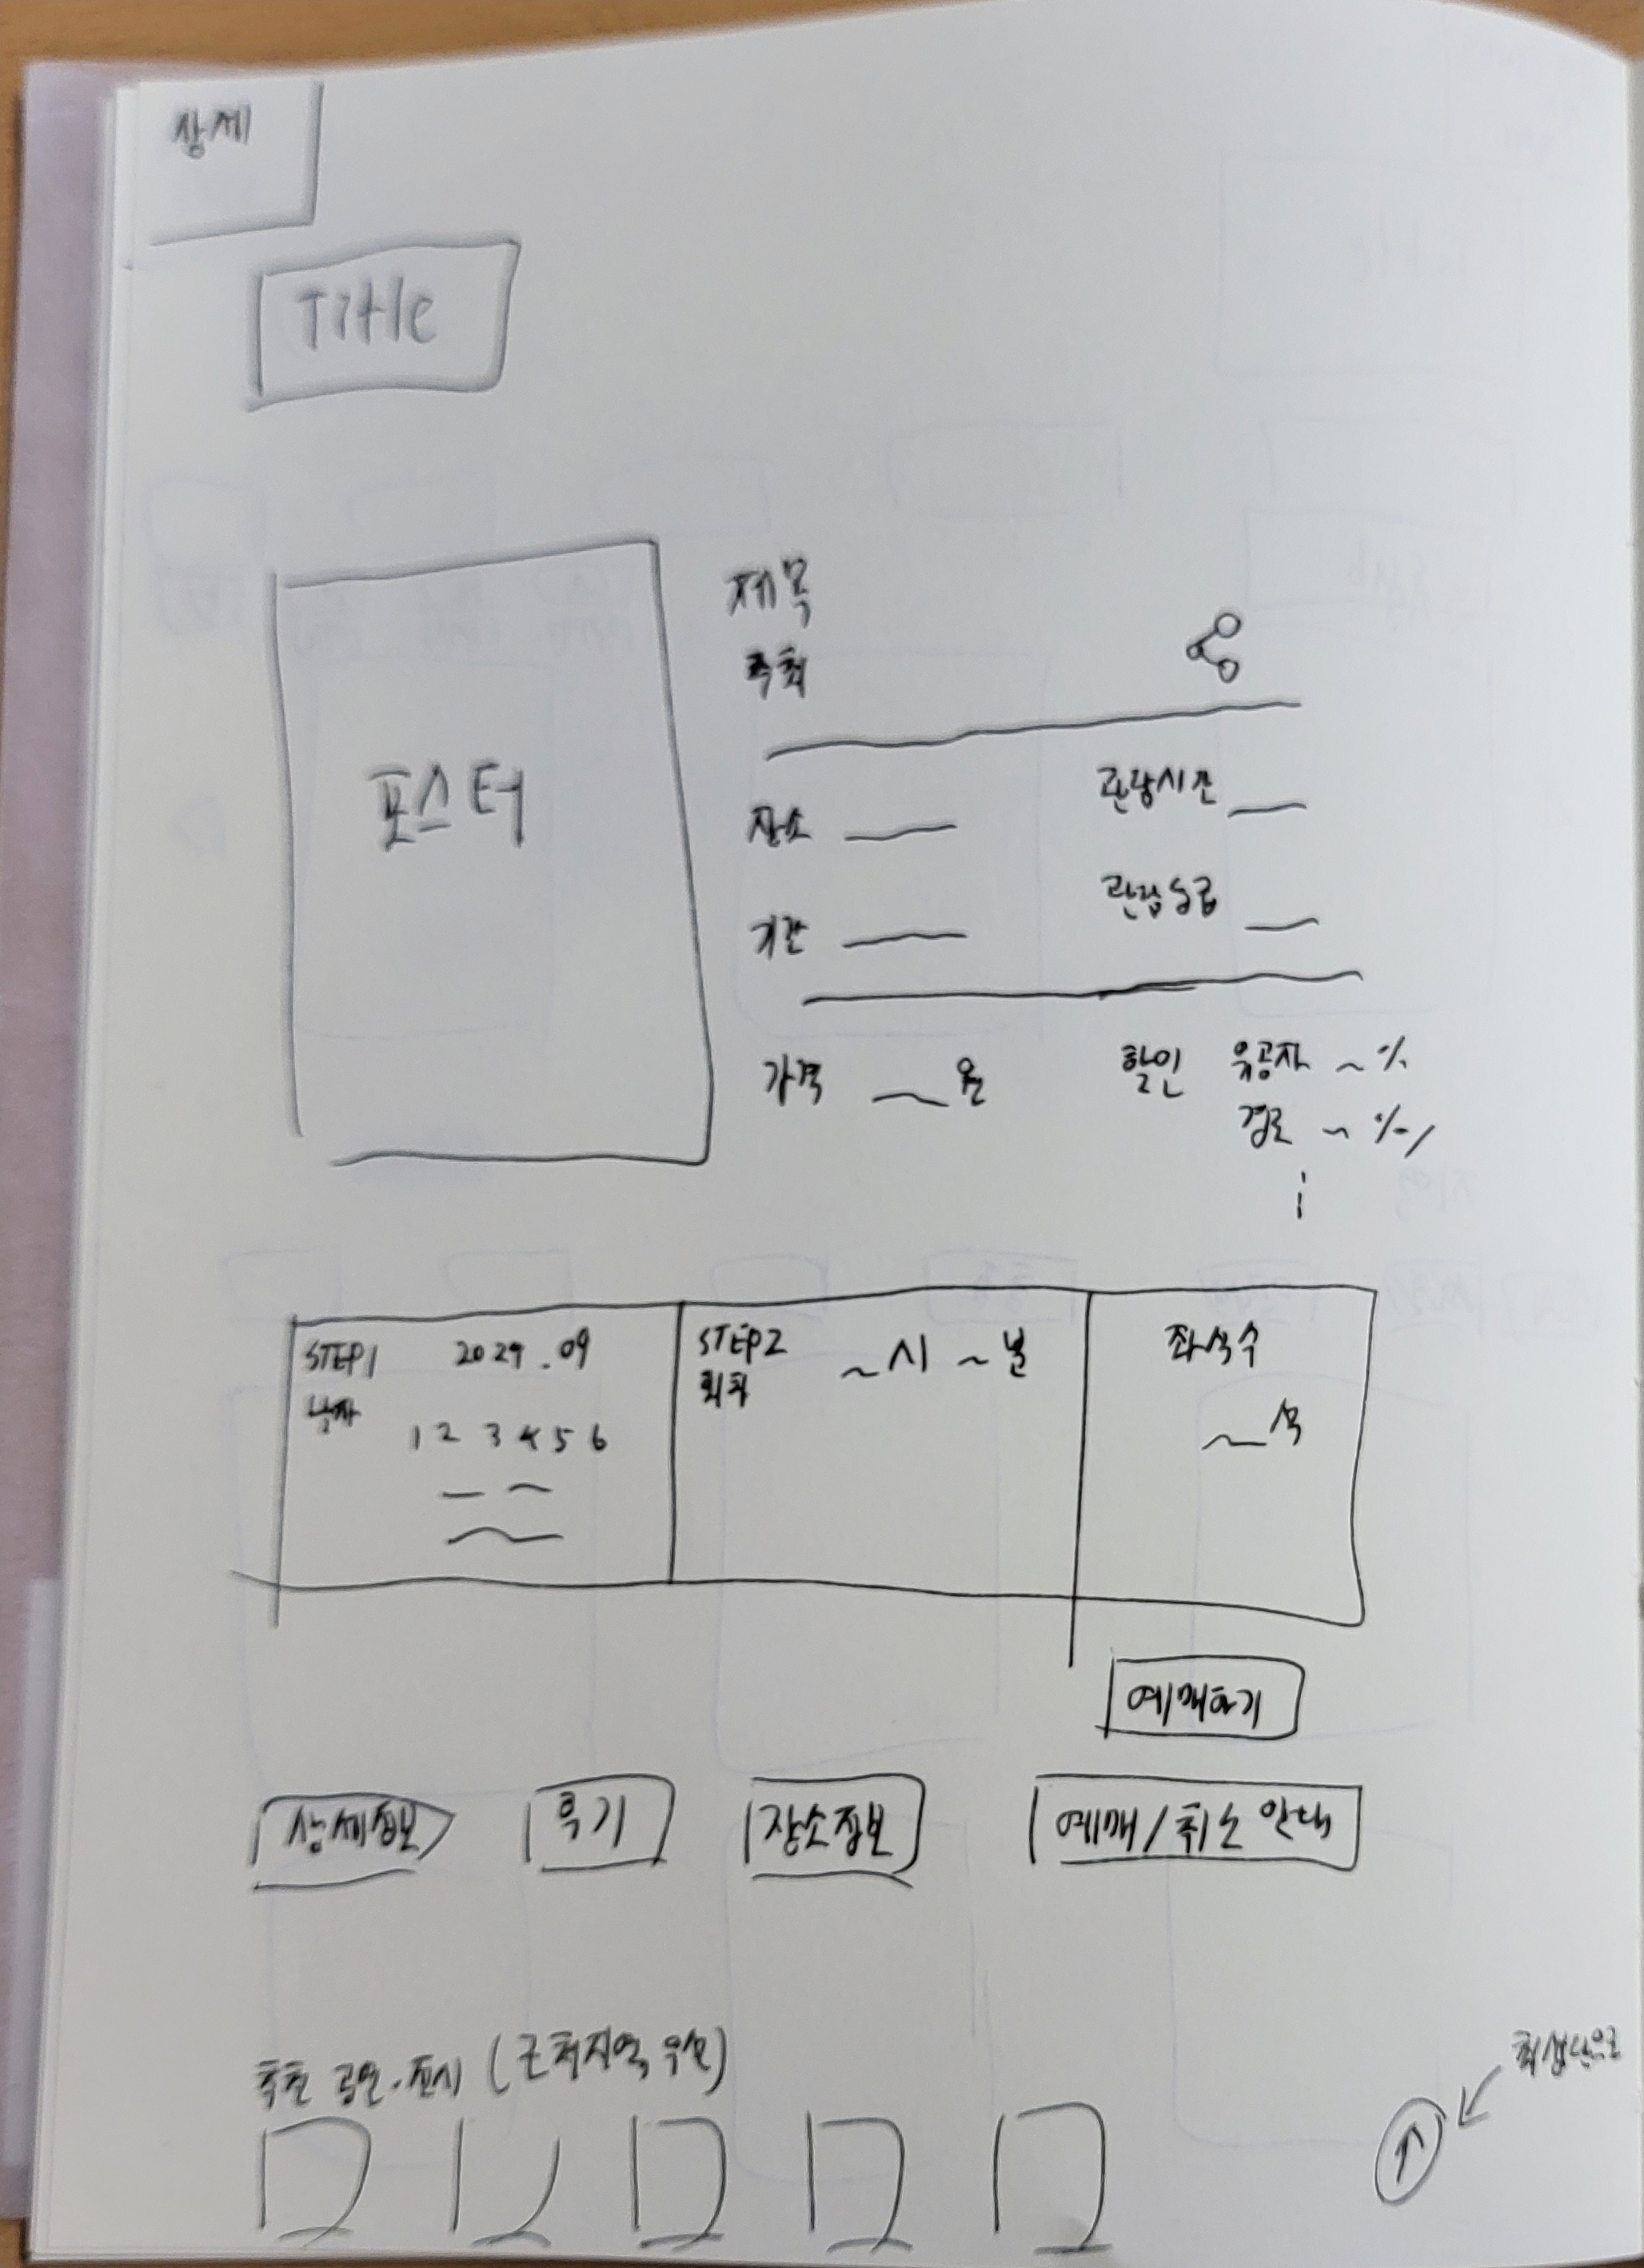 상세
Title
포스터
제목
주최
장소
관람시간
기간
관람등급
가격 원
할인 유공자 ~ %
경로 ~ %
STEP1 2029.09
날짜
1 2 3 4 5 6
STEP2 ~시 ~분
회차
좌석수
석
예매하기
상세정보
후기
장소정보
예매/취소 안내
추천 공연·전시 (근처지역, 우선)
최상단으로